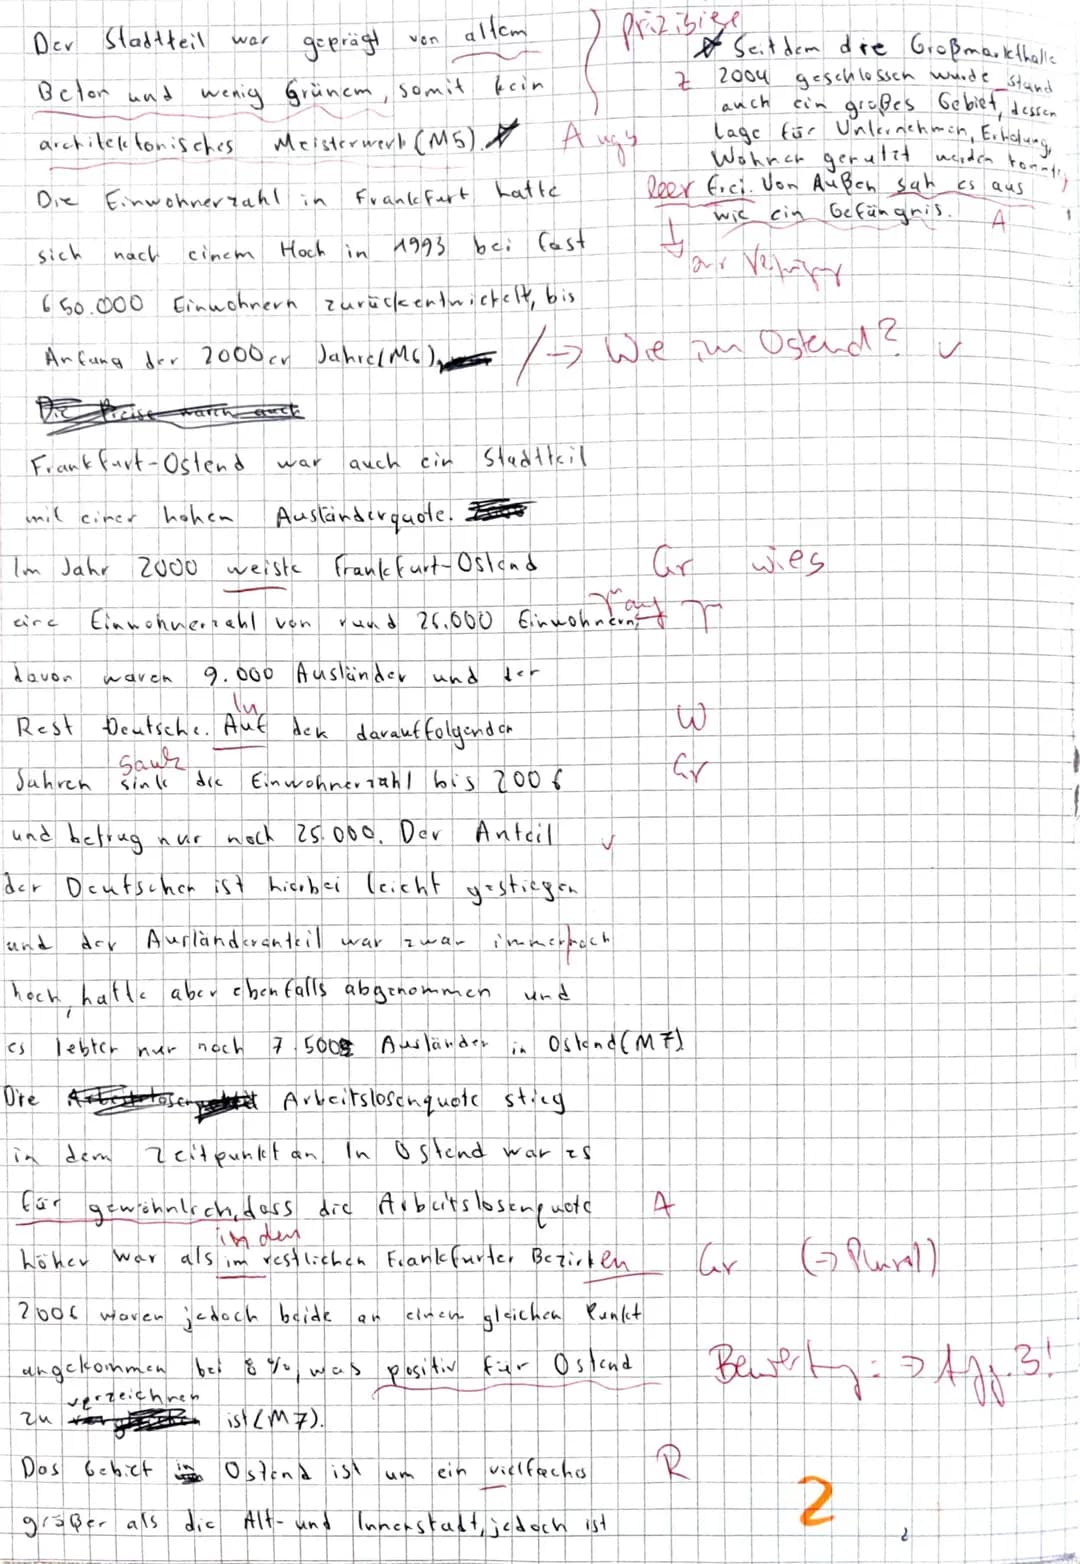 Der Stadtteil war geprägt von altem
Beton und wenig Grünem, somit kein
architektonisches Meisterwerk (M5).
Präzisiere
A
Seitdem die Großmarkthalle
Z 2004 geschlossen wurde stand
auch ein großes Gebiet, dessen
Lage für Unternehmen, Erholung,
Wohnen genutzt werden konnte,
leer frei. Von Außen sah es aus
wie ein Gefängnis. A
zur Verfügung
Die Einwohnerzahl in Frankfurt hatte
sich nach einem Hoch in 1993 bei fast
650.000 Einwohnern zurückentwickelt, bis
Anfang der 2000er Jahre (M6). / → Wie im Ostend? ✓
Die Preise waren auch
Frankfurt-Ostend war auch ein Stadtteil
mit einer hohen Ausländerquote.
Im Jahr 2000 weiste Frankfurt-Ostend Gr wies
eine Einwohnerzahl von rund 26.000 Einwohnern, auf
davon waren 9.000 Ausländer und der
Rest Deutsche. Auf In den darauffolgenden W
Jahren sink sank die Einwohnerzahl bis 2006 Gr
und betrug nur noch 25.000. Der Anteil ✓
der Deutschen ist hierbei leicht gestiegen
und der Ausländeranteil war zwar immernoch
hoch, hatte aber ebenfalls abgenommen und
es lebten nur noch 7.500 Ausländer in Ostend (M7)
Die Arbeitslosenquote stieg
in dem Zeitpunkt an. In Ostend war es
für gewöhnlich, dass die Arbeitslosenquote A
höher war als im in den restlichen Frankfurter Bezirken Gr (→ Plural)
2006 waren jedoch beide an einen gleichen Punkt
angekommen bei 8%, was positiv für Ostend Bewertg: → Afg. 3!
zu verzeichnen ist (M7).
Das Gebiet in Ostend ist um ein vielfaches R
größer als die Alt- und Innenstadt, jedoch ist
2
2